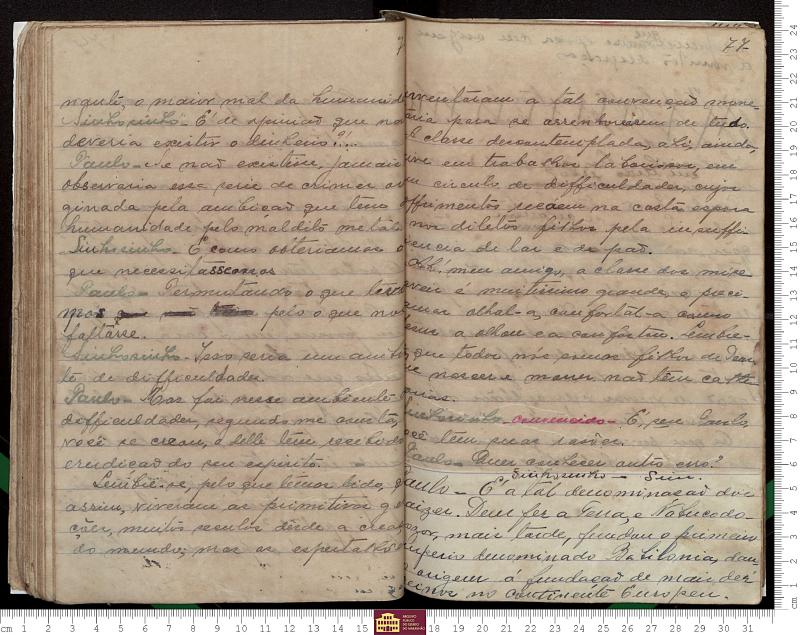 nguli, o maior mal da humanid
Sinhosinho - É de opinião que não
deveria existir o dinheiro?!...
Paulo - Se não existisse, jamais
observaria essa serie de crimes or
ginada pela ambição que têm
humanidade pelo maldito metal
Sinhosinho - E como obteriamos o
que necessitassemos
Paulo - Permutando o que
mos pelo o que nos
faltasse.
Sinhosinho - Isso seria um
te de difficuldades.
Paulo - Mas foi nesse ambiente d
difficuldades, segundo me consta,
você se creou, e delle têm recebido
erudição do seu espirito.
Lembre-se, pelo que temos lido, q
assim, viveram as primitivas g
ções, muitos seculos desde a crea
do mundo; mas os espertalhões
77
inventaram a tal convenção mone-
taria para se assenhorearem de tudo.
A classe descontemplada, ahi, ainda,
vive em trabalhos laboriosos, em
um circulo de difficuldades, cujos
soffrimentos recáem na casta esposa
nos diletos filhos pela insuffi-
ciencia de lar e de pão.
Ah! meu amigo, a classe dos mise-
raveis é muitissimo grande, e preci-
samos olhal-a, confortal-a como
a olhou e a confortou. Lembre-
que todos nós somos filhos de Deus,
e nascer e morrer não têm cathe-
gorias.
Sinhosinho convencido - É, seu Paulo,
você tem suas rasões.
Paulo - Quer conhecer outro erro?
Sinhosinho - Sim.
Paulo - É a tál denominação de
paizes. Deus fez a Terra, e Nabucodo-
nozor, mais tarde, fundou o primeiro
imperio denominado Babilonia, dan-
origem á fundação de mais dez
reinos no continente Europeu.
ARQUIVO PÚBLICO DO ESTADO DO MARANHÃO
cm 1 2 3 4 5 6 7 8 9 10 11 12 13 14 15 16 17 18 19 20 21 22 23 24 25 26 27 28 29 30 31